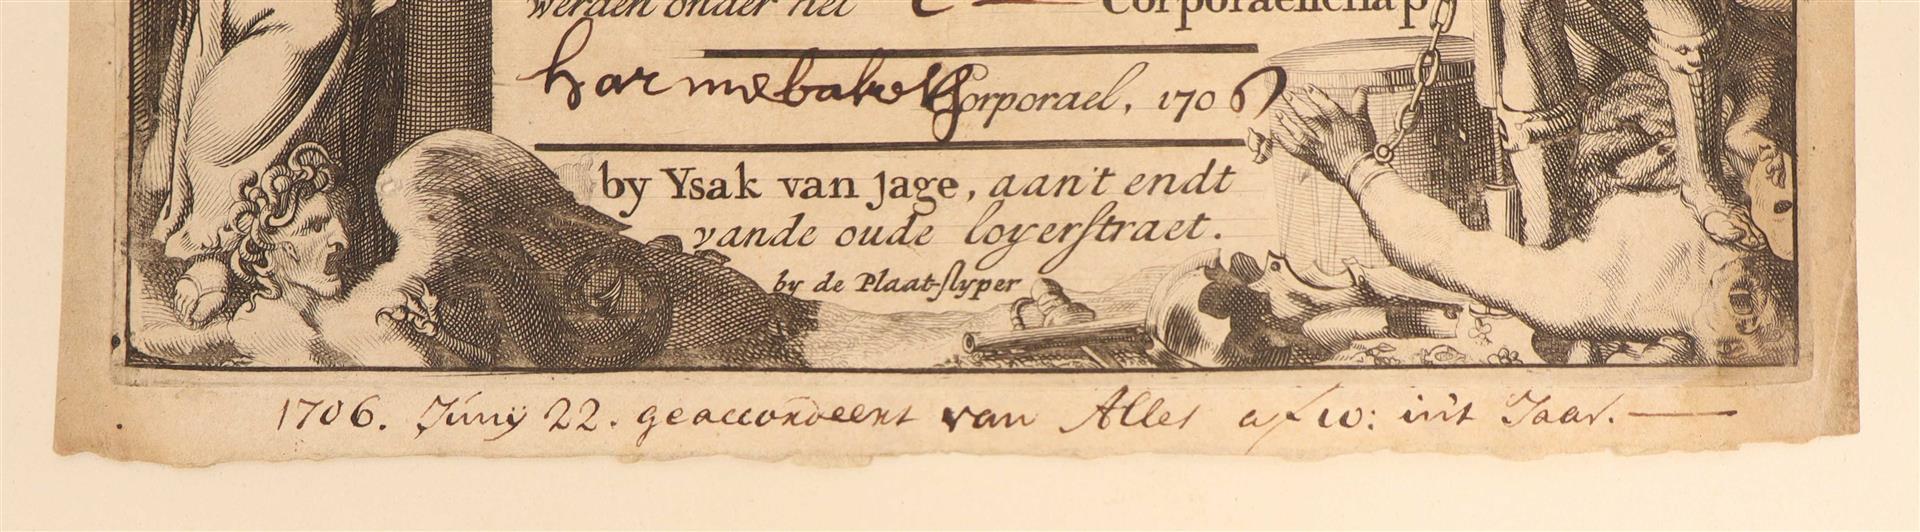 werden onder het Corporaelschap
harmebakers Corporael, 1706
by Ysak van Jage, aan't endt
vande oude loyerstraet.
by de Plaat-slyper
1706. Junij 22. geaccordeert van Alles af w: in't Jaar.